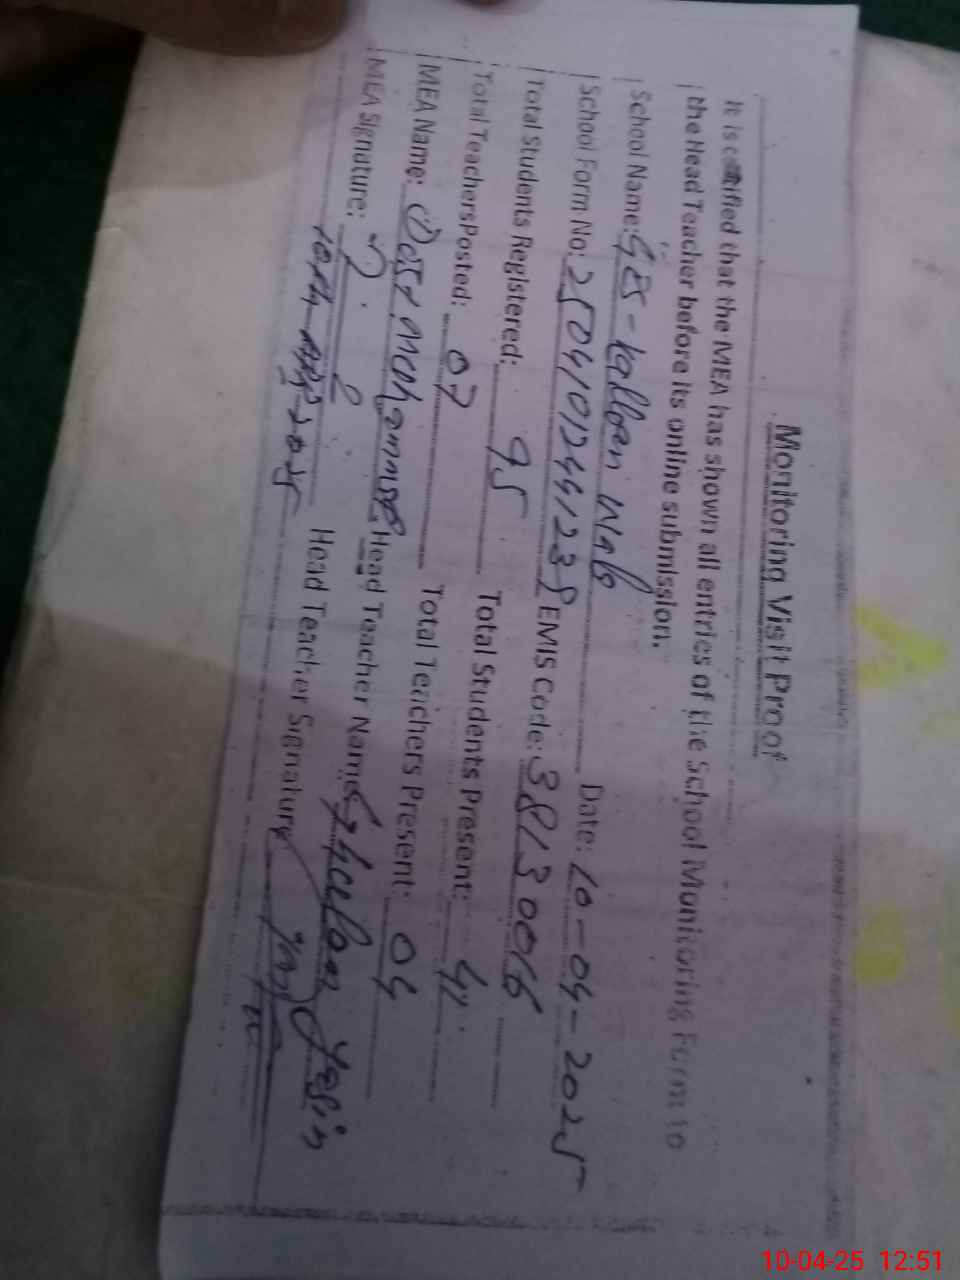 Monitoring Visit Proof
It is certified that the MEA has shown all entries of the School Monitoring Form to
the Head Teacher before its online submission.
School Name: Date: 10-04-2025
School Form No: EMIS Code: 38130016
Total Students Registered: 95 Total Students Present: 41
Total Teachers Posted: 07 Total Teachers Present: 04
MEA Name: Dost Mohammad Head Teacher Name: Ghulam Yasin
MEA Signature: Head Teacher Signature
10-04-25 12:51